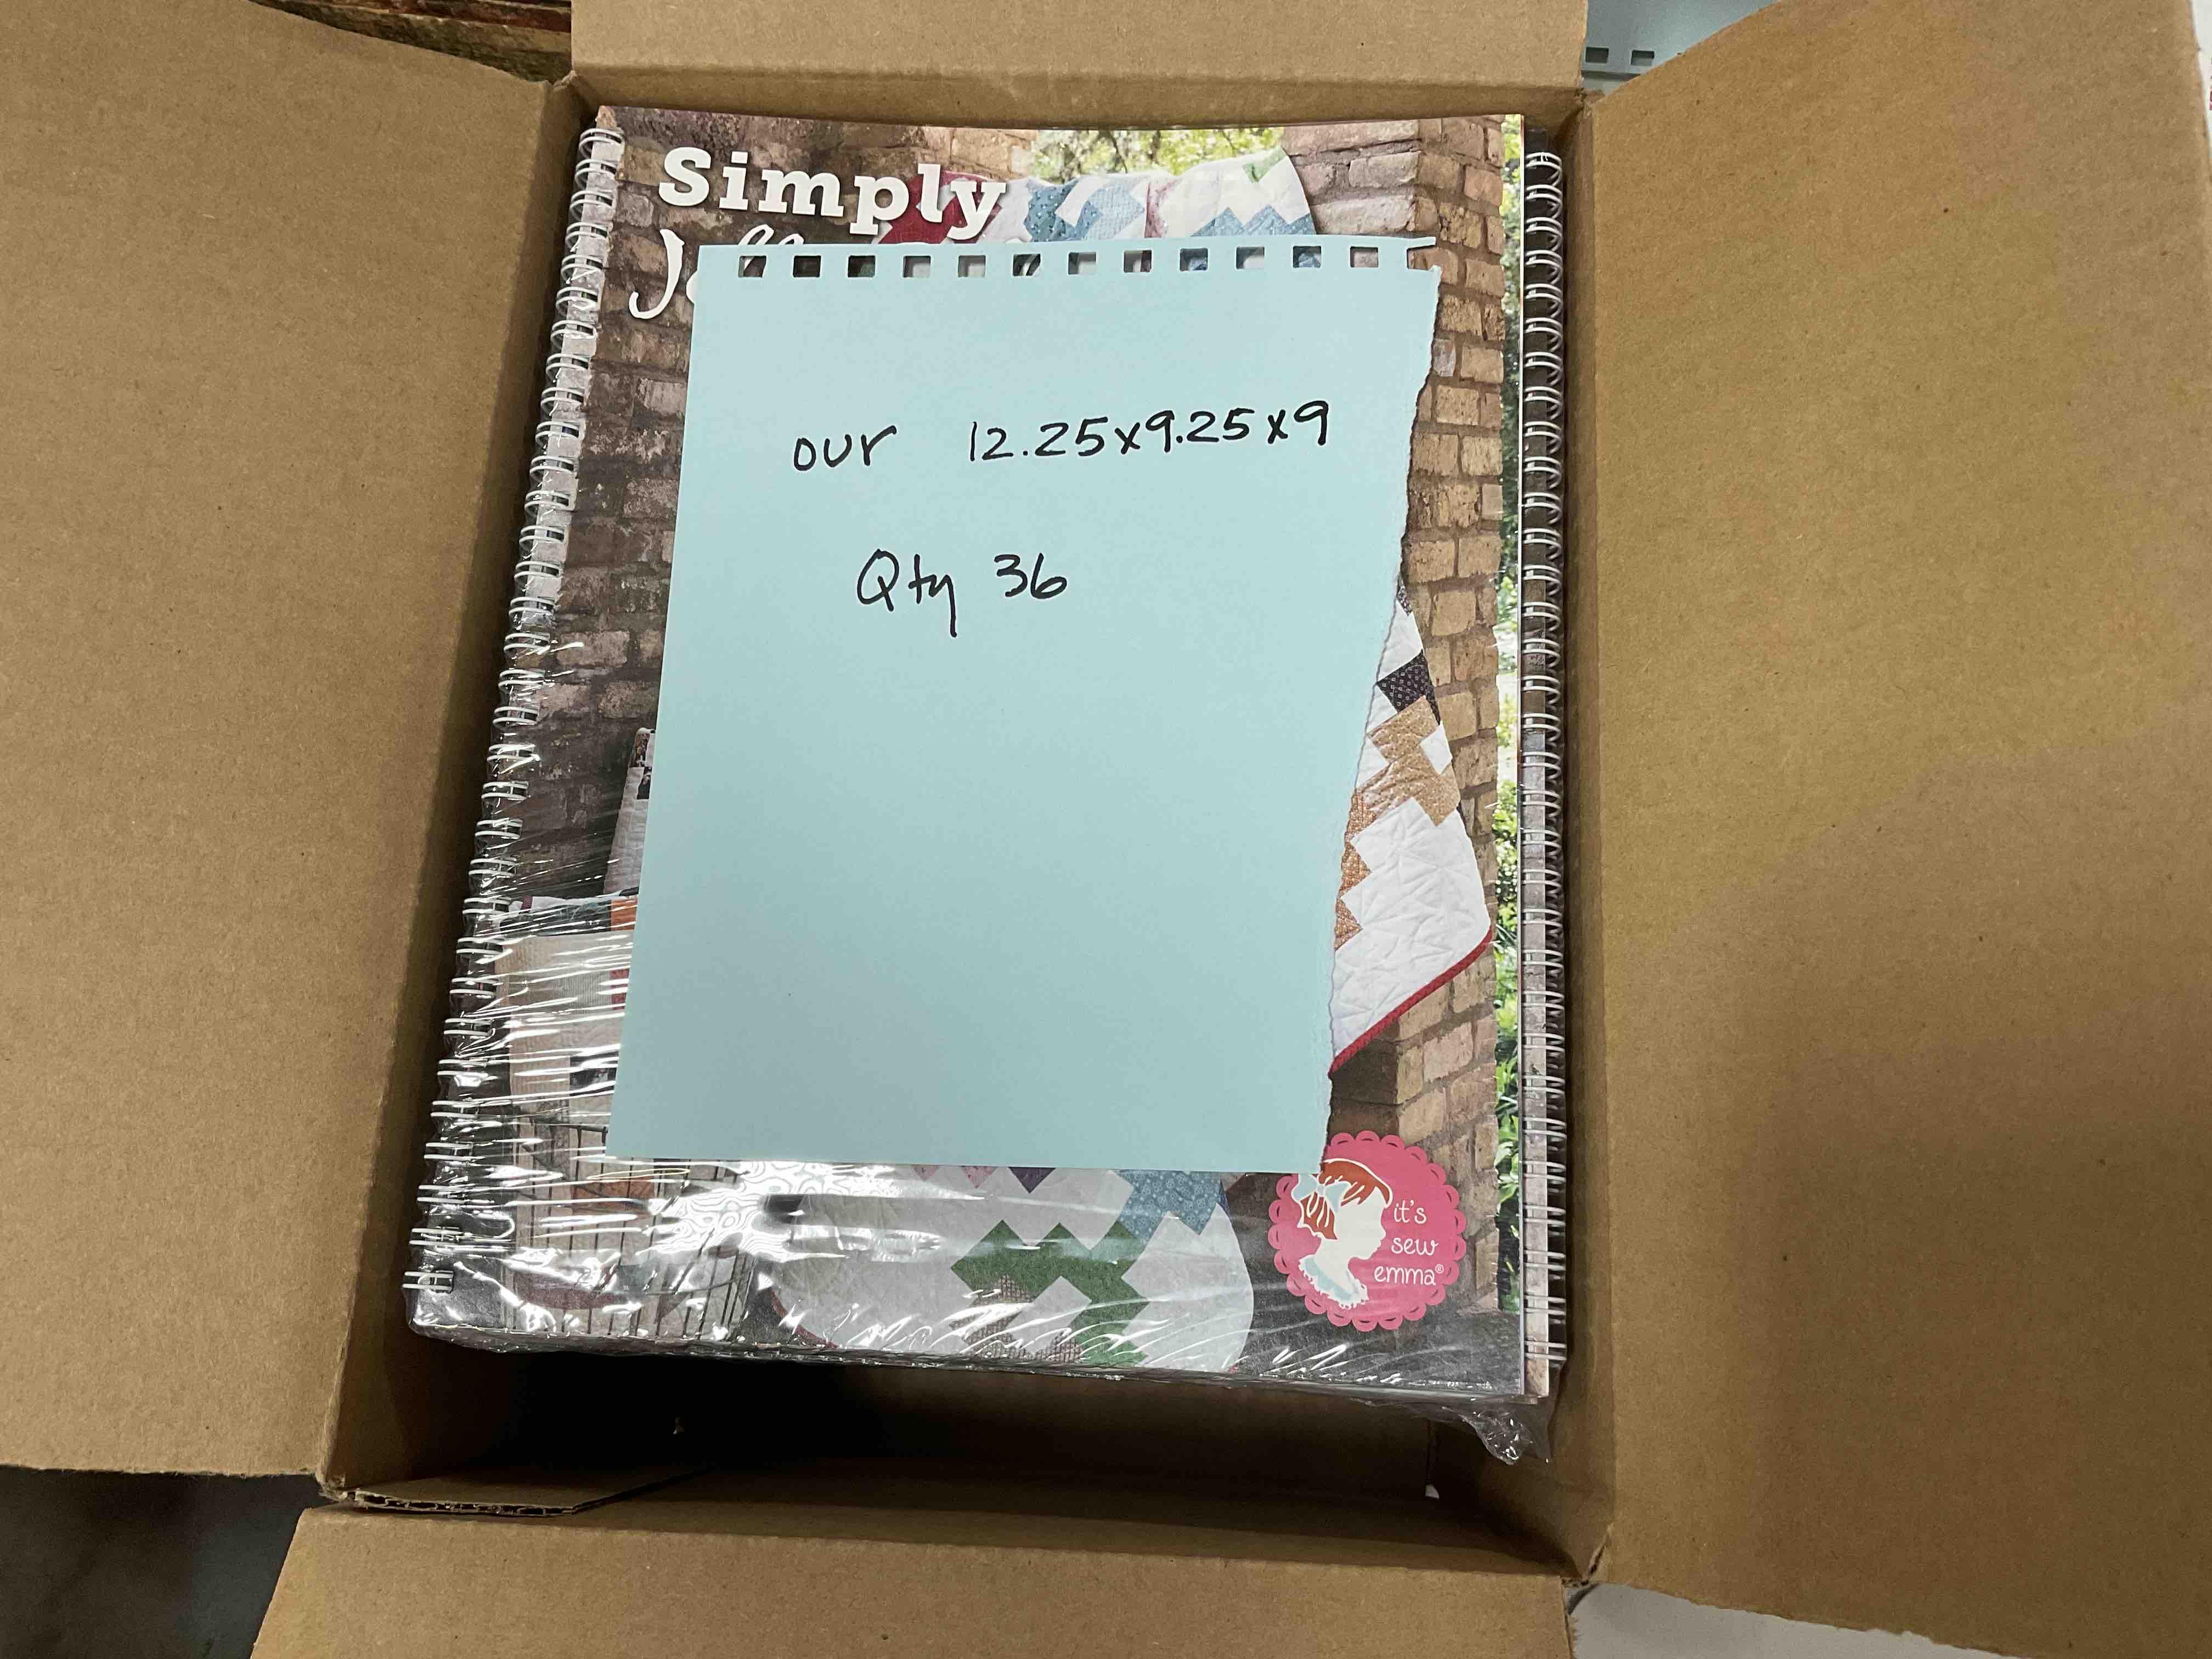 Simply
our 12.25x9.25x9
Qty 36
it's
sew
emma®